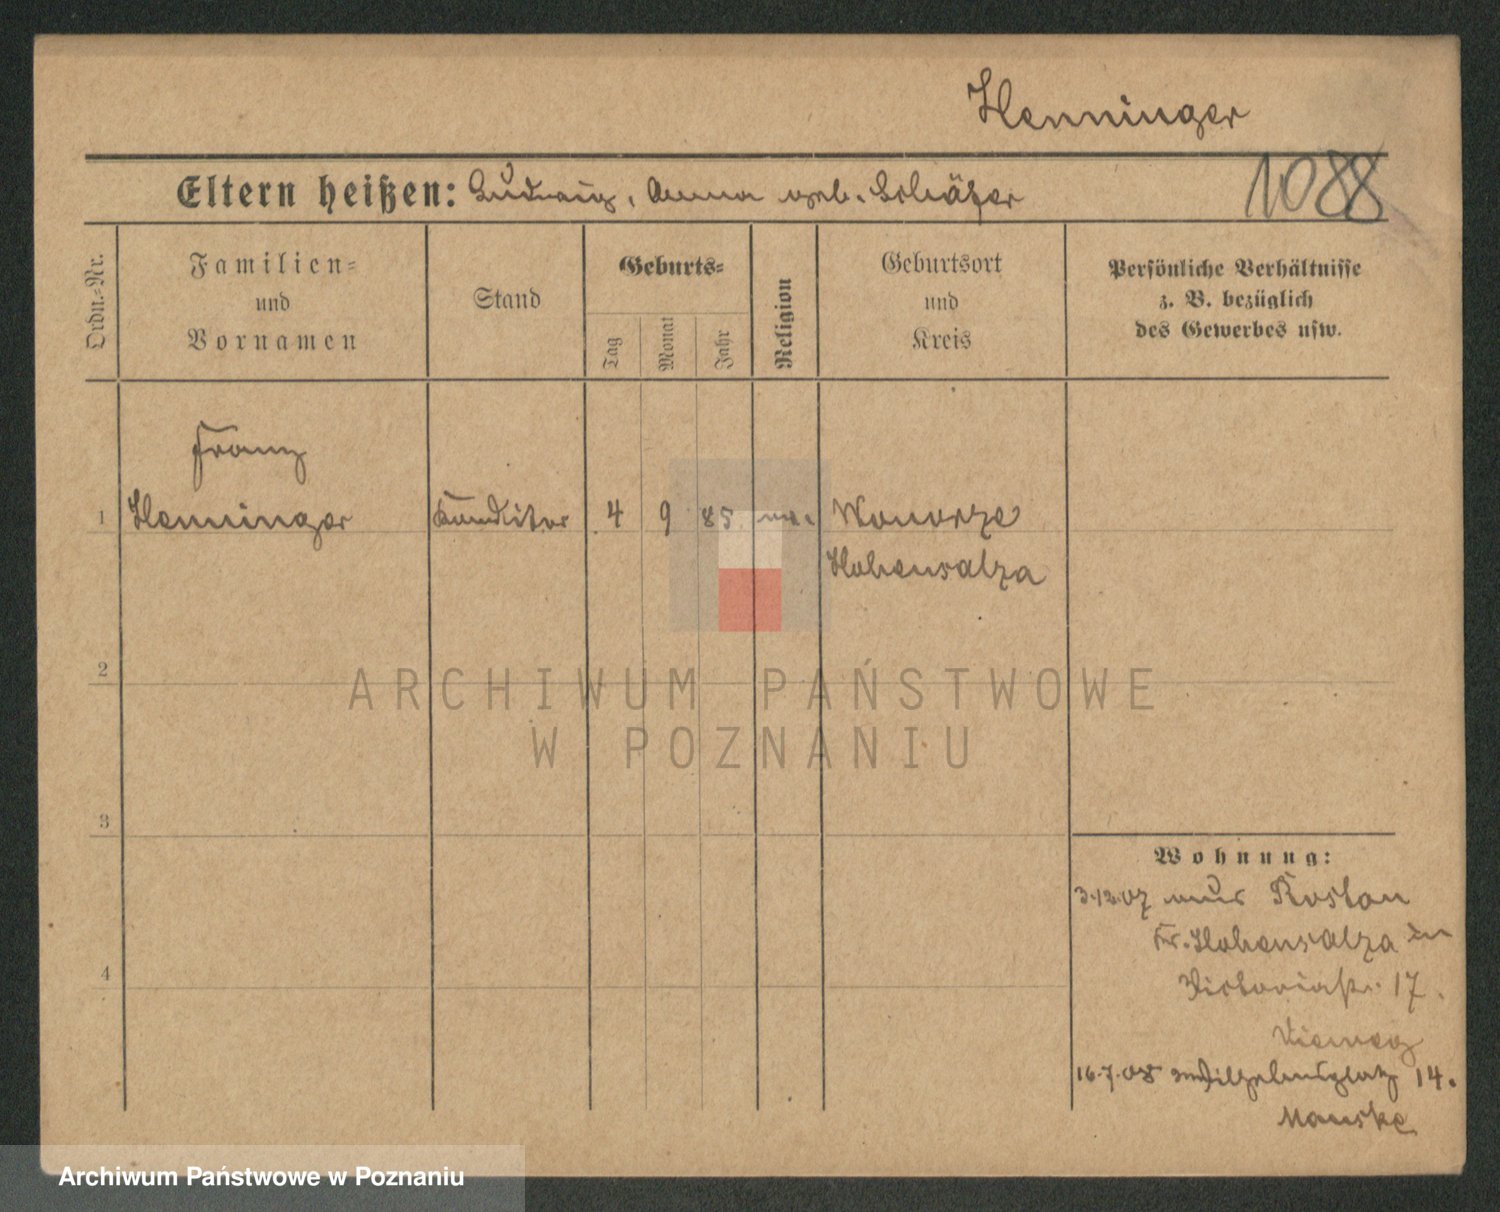 Henninger
1088
Eltern heißen: Ludwig, Anna geb. Schäfer
Ordn.-Nr.
Familien-
und
Vornamen
Stand
Geburts-
Tag
Monat
Jahr
Religion
Geburtsort
und
Kreis
Persönliche Verhältnisse
z. B. bezüglich
des Gewerbes usw.
Franz
1 Henninger Konditor 4 9 85 Wonorze
Hohensalza
2
3
4
Wohnung:
3.12.07 aus
Kr. Hohensalza in
Victoriastr. 17.
Vieweg
16.7.08 Wilhelmsplatz 14.
Manske
ARCHIWUM PAŃSTWOWE
W POZNANIU
Archiwum Państwowe w Poznaniu